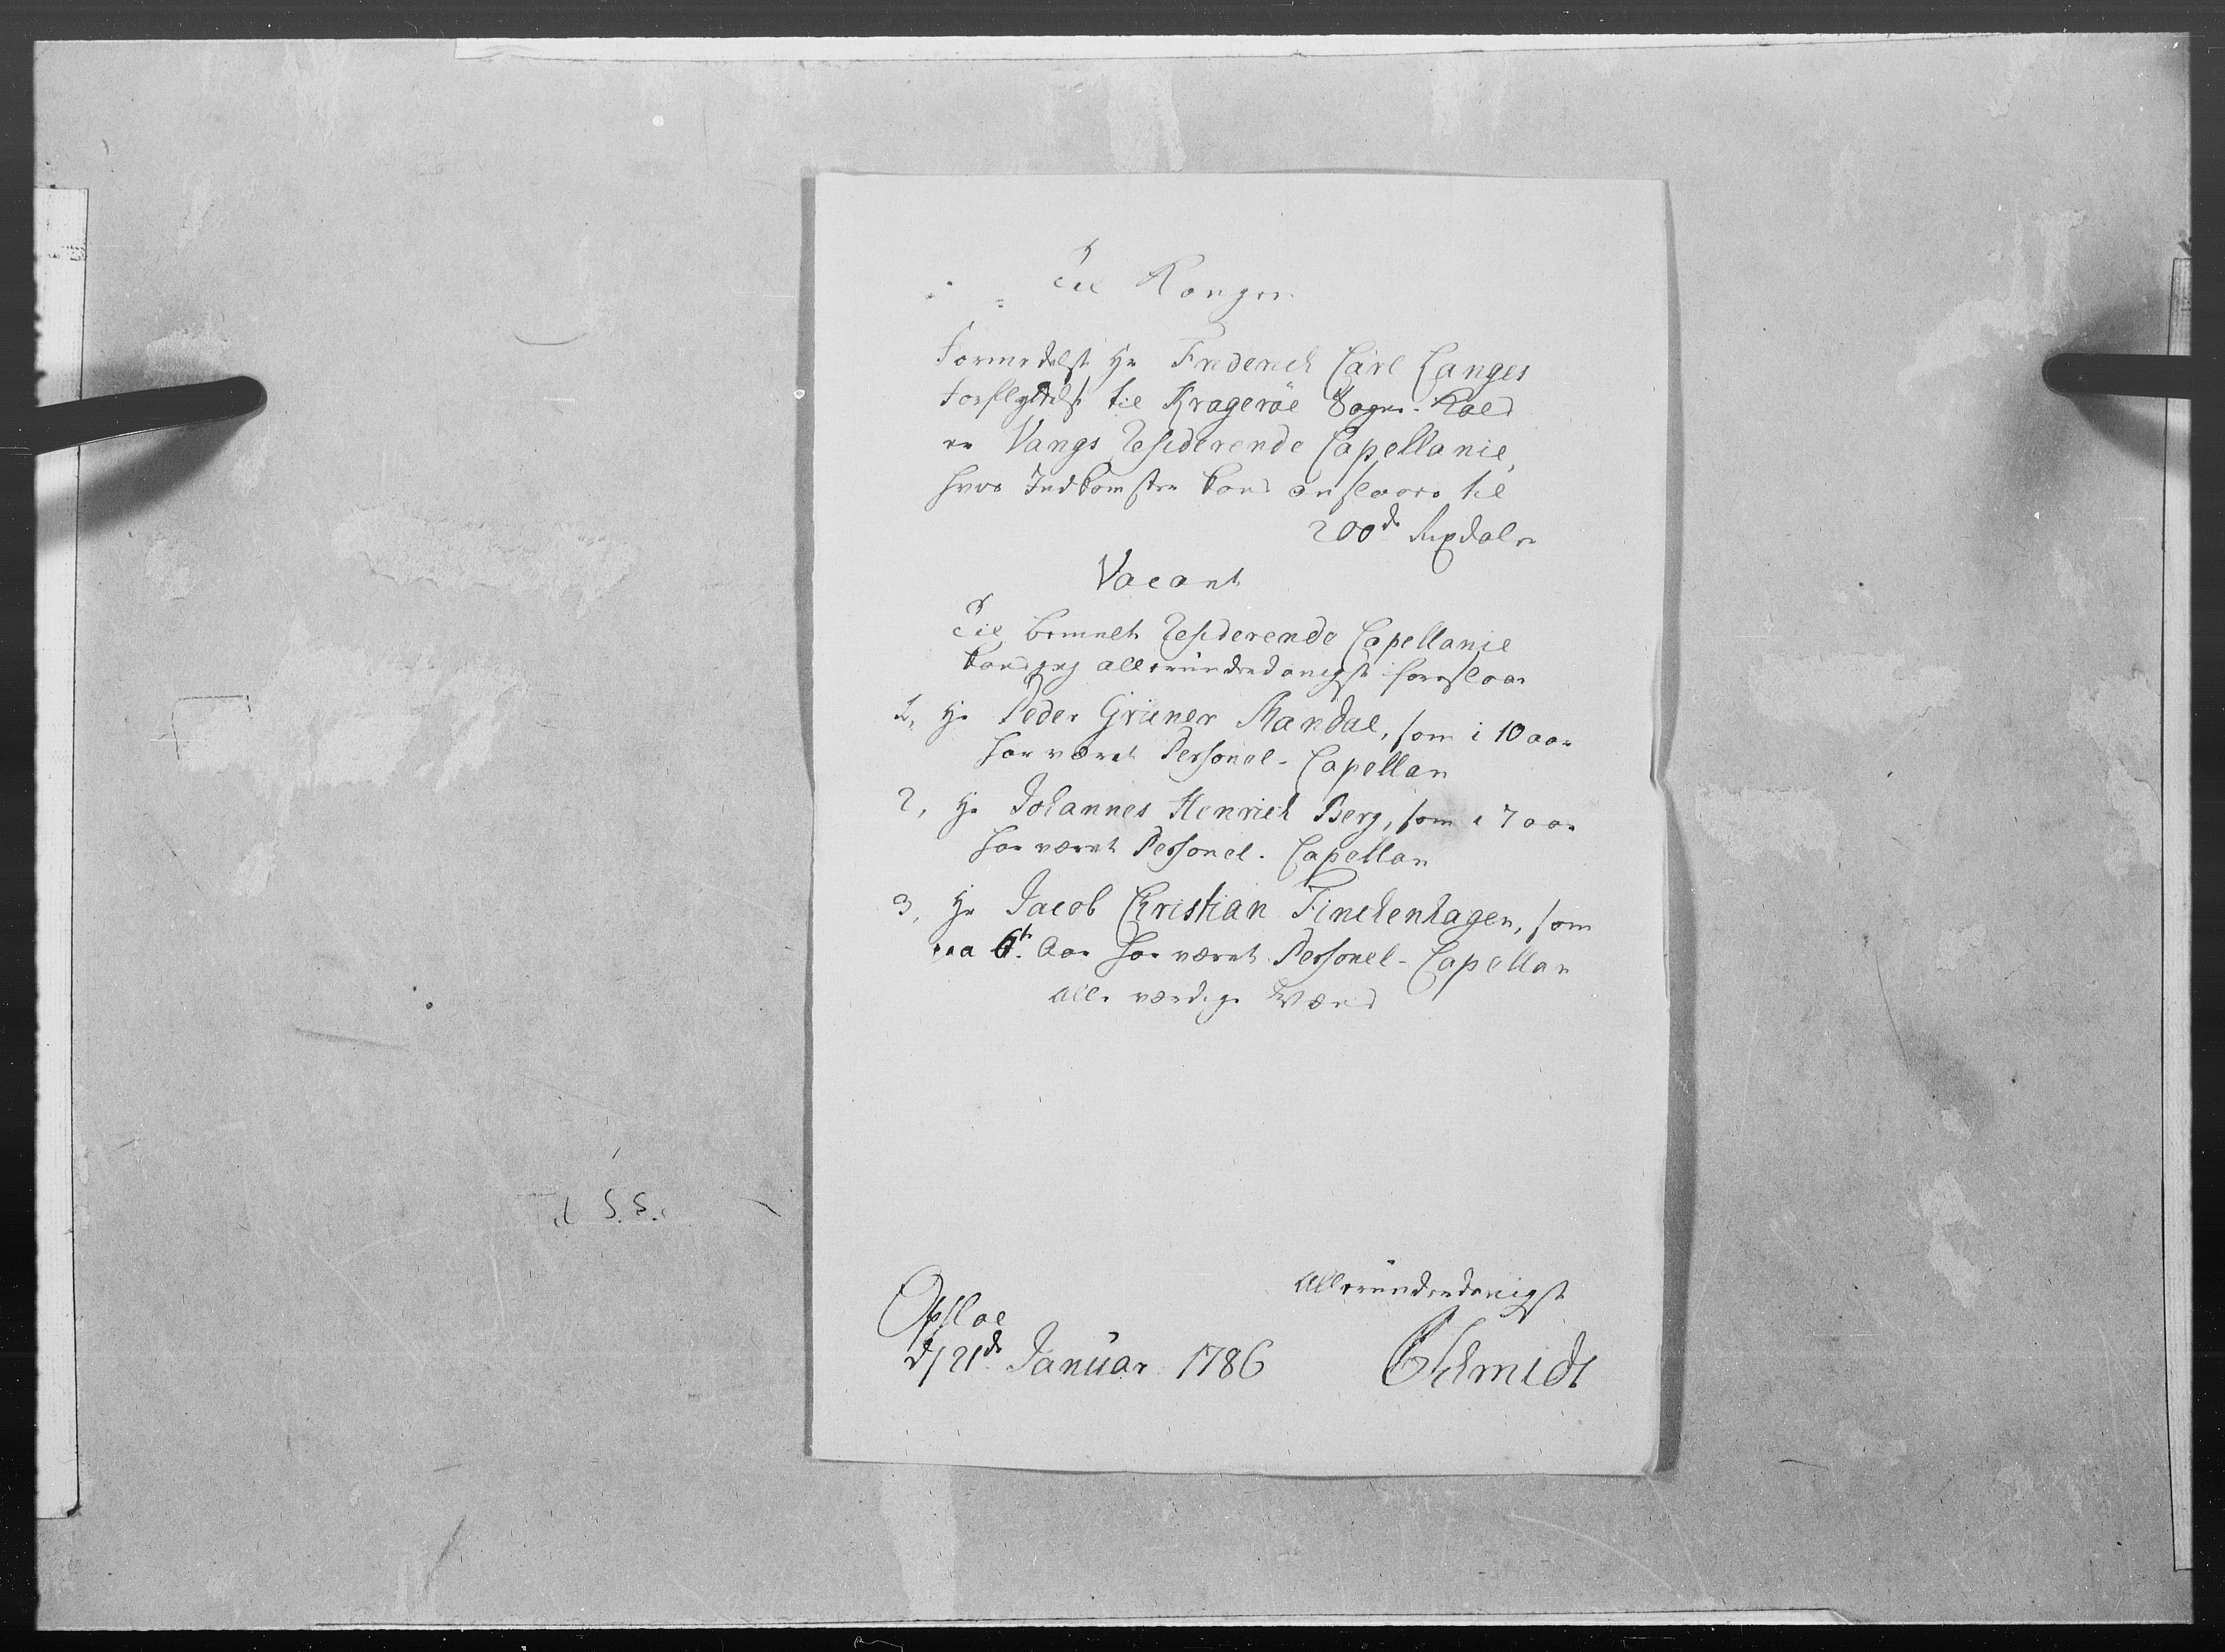 Til Kongen
Formedelst Hr Friderich Carl Langes
Forflyttelse til Krageröe Sogne-Kald
er Vangs Residerende Capellanie,
hvis Indkomster kand anslaaes til
200de Rixdaler
Vacant
Til bemelte Residerende Capellanie
kand jeg allerunderdanigst foreslaae
1, Hr Peder Grüner Mandal, som i 10 aar
har været Personel-Capellan
2, Hr Johannes Henrich Berg, som i 7 aar
har været Personel-Capellan
3, Hr Jacob Christian Finckenhagen, som
paa 6te Aar har været Personel-Capellan
alle værdige Mænd
Allerunderdanigst
Opsloe
d/ 21de Januar 1786
CSchmidt